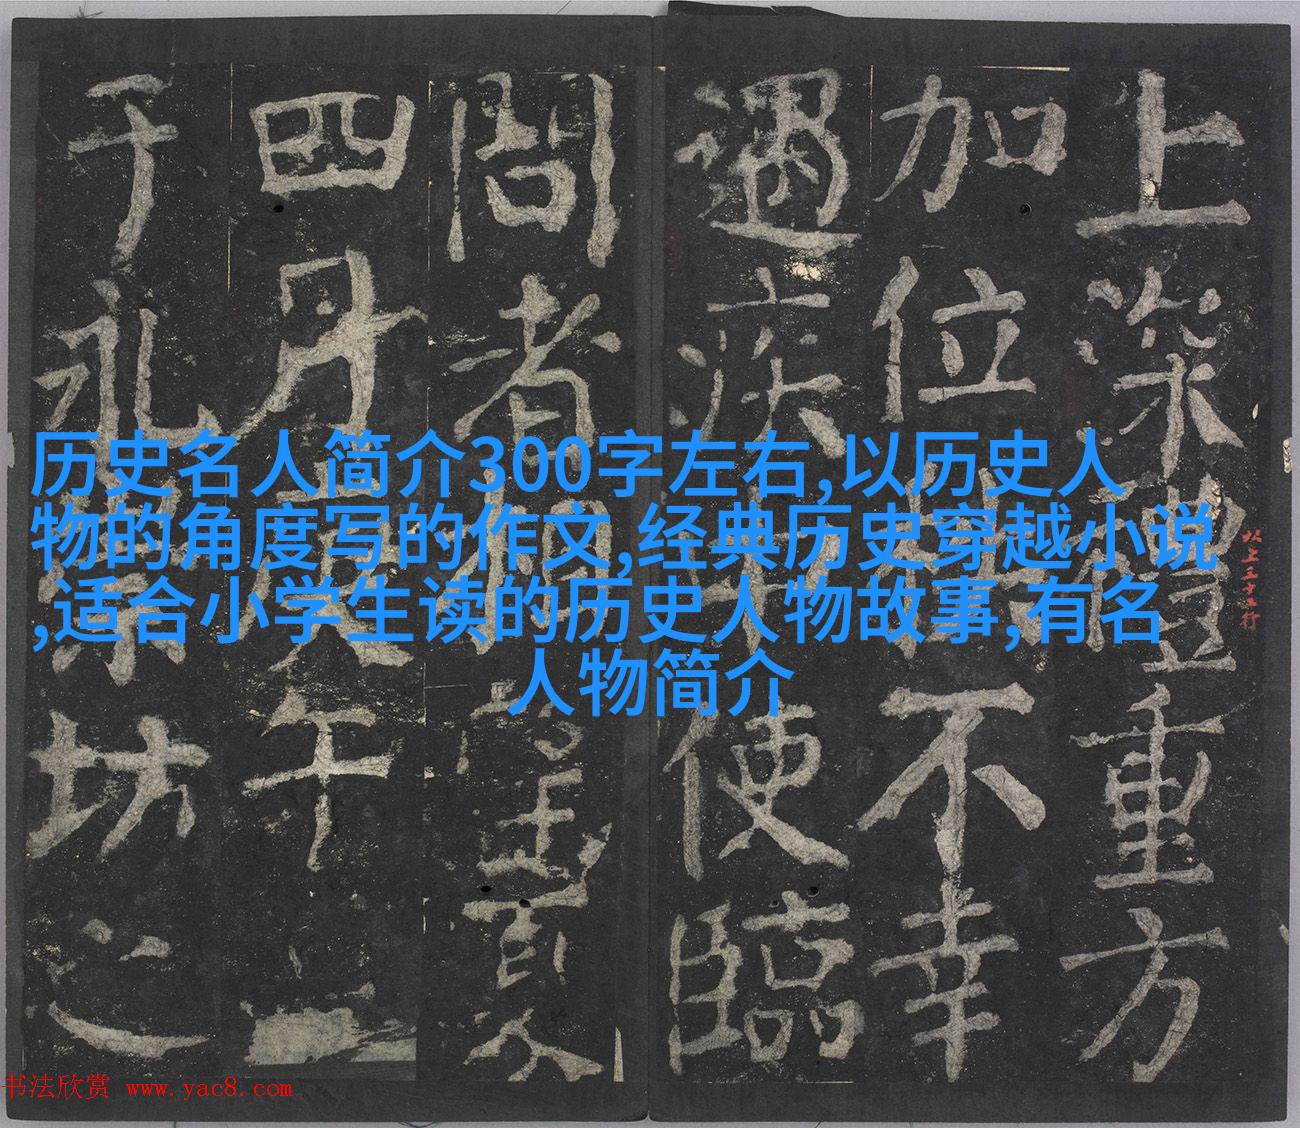 历史名人简介300字左右,以历史人
物的角度写的作文,经典历史穿越小说
,适合小学生读的历史人物故事,有名
人物简介
上深禮重方
加位不幸
遇疾使臨
問者相望夏
四月午
于永樂坊之
以上五十二行
书法欣赏 www.yac8.com